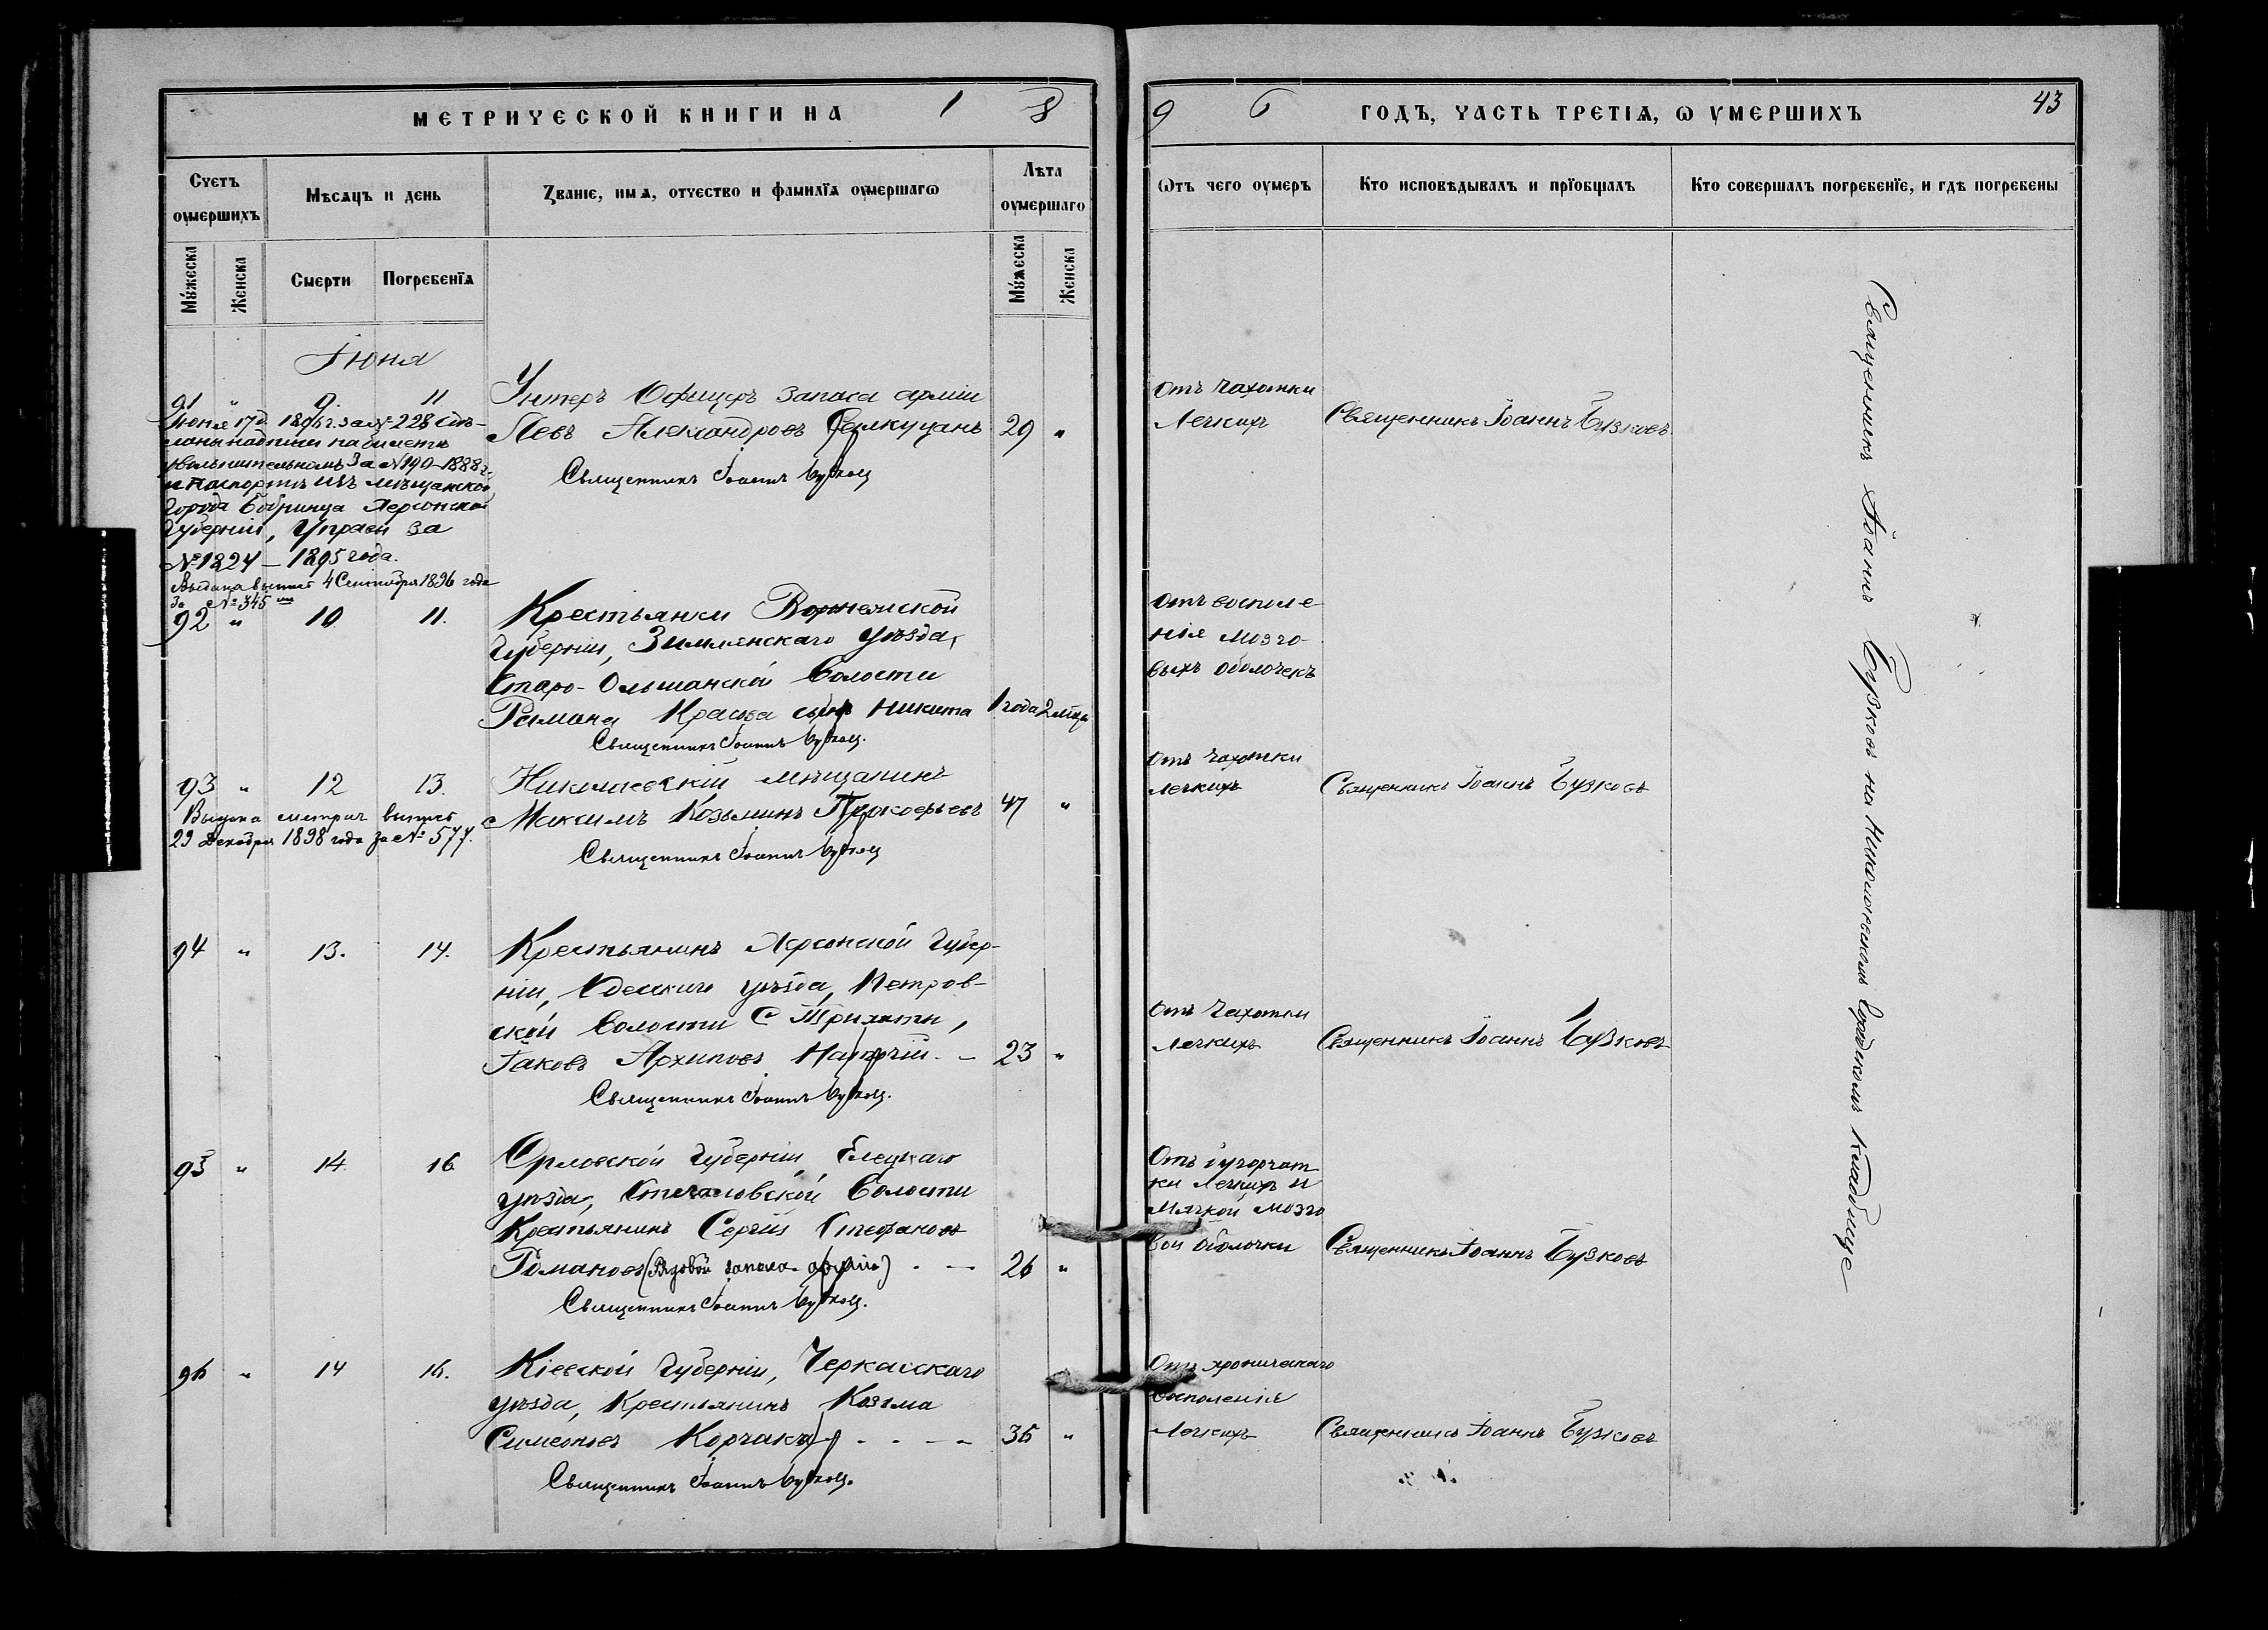 МЕТРИЧЕСКОЙ КНИГИ НА 1 8
9 6 ГОДЪ, ЧАСТЬ ТРЕТІѦ, Ѡ УМЕРШИХЪ 43
Счетъ оумершихъ
Мѣсяцъ и день
Званіе, имѧ, отчество и фамиліѧ оумершагѡ
Лѣта оумершаго
Ѡтъ чего оумеръ
Кто исповѣдывалъ и пріобщалъ
Кто совершалъ погребеніе, и гдѣ погребены
Мужеска
Женска
Смерти
Погребеніѧ
Мужеска
Женска
Іюня
91 " 9. 11
Іюня 17 д. 1896 г. за № 228 сдѣ-
лана надпись на билетѣ
увольнительномъ за № 190-1888 г.
и паспортѣ изъ мѣщанской
города Бобринца Херсонской
Губерніи, Управы за
№ 1824 - 1895 года.
Выдана выпись 4 Сентября 1896 года
за № 345
Унтеръ Офицеръ запаса арміи
Левъ Александровъ 29 "
Священникъ Іоаннъ Бузковъ
Отъ чахотки
Легкихъ
Священникъ Іоаннъ Бузковъ
92 " 10 11.
Крестьянки Воронежской
Губерніи, Землянскаго уѣзда,
Старо-Ольшанской Волости
сынъ Никита 1 года 2 мѣся
Священникъ Іоаннъ Бузковъ.
Отъ воспале-
нія мозго-
выхъ оболочекъ
93 " 12 13.
Выдана метрич выпись
29 Декабря 1898 года за № 577.
Николаевскій мѣщанинъ
Максимъ Козьминъ Прокофьевъ 47 "
Священникъ Іоаннъ Бузковъ
Отъ чахотки
легкихъ
Священникъ Іоаннъ Бузковъ
94 " 13. 14.
Крестьянинъ Херсонской Губер-
ніи, Одесскаго уѣзда, Петров-
ской Волости С Трихаты,
Іаковъ Архиповъ - 23 "
Священникъ Іоаннъ Бузковъ.
Отъ Чахотки
Легкихъ
Священникъ Іоаннъ Бузковъ
95 " 14 16
Орловской Губерніи Елецкаго
уѣзда, Волости
Крестьянинъ Сергій Стефановъ
Романовъ (Рядовой запаса арміи) - - 26 "
Священникъ Іоаннъ Бузковъ.
Отъ бугорчат
ки Легкихъ и
Мягкой мозго
вой оболочки
Священникъ Іоаннъ Бузковъ
96 " 14 16.
Кіевской Губерніи, Черкасскаго
уѣзда, Крестьянинъ Козьма
Симеоновъ Корчакъ - - - - 36 "
Священникъ Іоаннъ Бузковъ.
Отъ хроническаго
воспаленія
Легкихъ
Священникъ Іоаннъ Бузковъ
Священникъ Іоаннъ Бузковъ на Николаевскомъ Городскомъ Кладбище